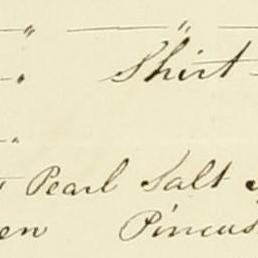 " "
" Shirt
"
Pearl Salt
en Pincus